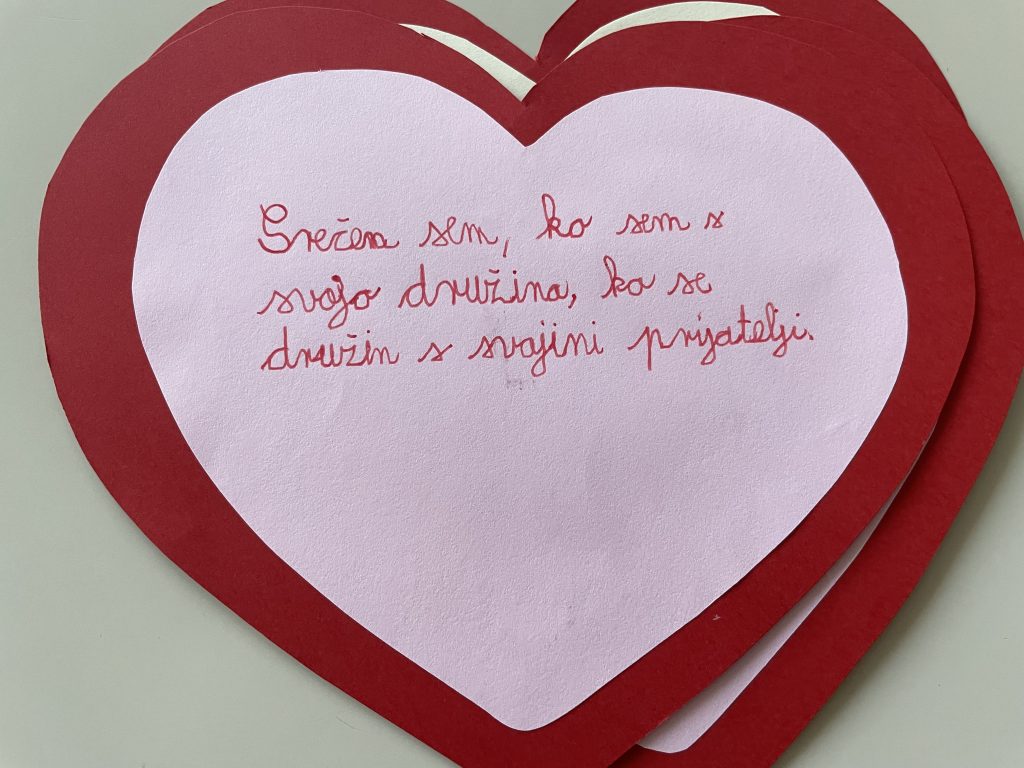 Srečen sem, ko sem s
svojo družino, ko se
družin s svojini prijatelji.